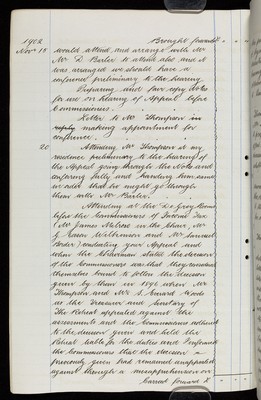 1902 Brought forward
Nov 18 would attend and arrange with Mr
Mr D. Barlee to attend also and it
was arranged we should have a
conference preliminary to the hearing
Preparing and fair copy Notes
for use on hearing of Appeal before
Commissioners
Letter to Mr Thompson in
reply making appointment for
conference
20 Attending Mr Thompson at my
residence preliminary to the hearing of
the Appeal going through the Notes and
conferring fully and handing him same
in order that he might go through
them with Mr Barlee
Attending at the De Grey Rooms
before the Commissioners of Income Tax
(Mr James Melrose in the Chair, Mr
J. Green Wilkinson and Mr Samuel
Border) conducting your Appeal and
when the Chairman stated the decision
of the Commissioners was that they considered
themselves bound to follow the decision
given by them in 1898 when Mr
Thompson and Mr S. Edward Woods
as the Treasurer and Secretary of
The Retreat appealed against the
assessments and the Commissioners adhered
to the decision given and held the
Retreat liable for the duties and I informed
the Commissioners that the decision
previously given had remained unappealed
against through a misapprehension on
Carried forward £